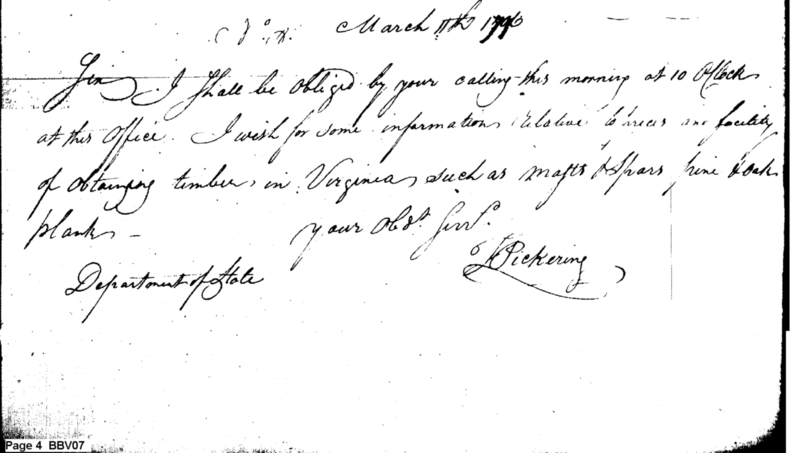 March 11th 1796
Sir, I Shall be obliged by your calling this morning at 10 OClock
at this Office. I wish for some information relative to prices and facility
of obtaining timber in Virginia, such as masts & Spars pine & oak
plank —
your Obdt. Servt.
Pickering
Department of State
Page 4 BBV07